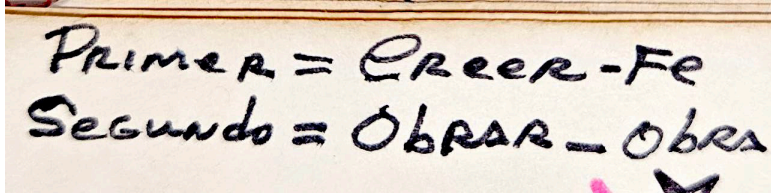 Primer = Creer - Fe
Segundo = Obrar - Obra